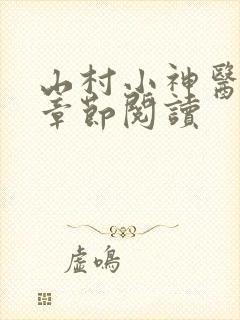 山村小神醫
章節閱讀
虛鳴